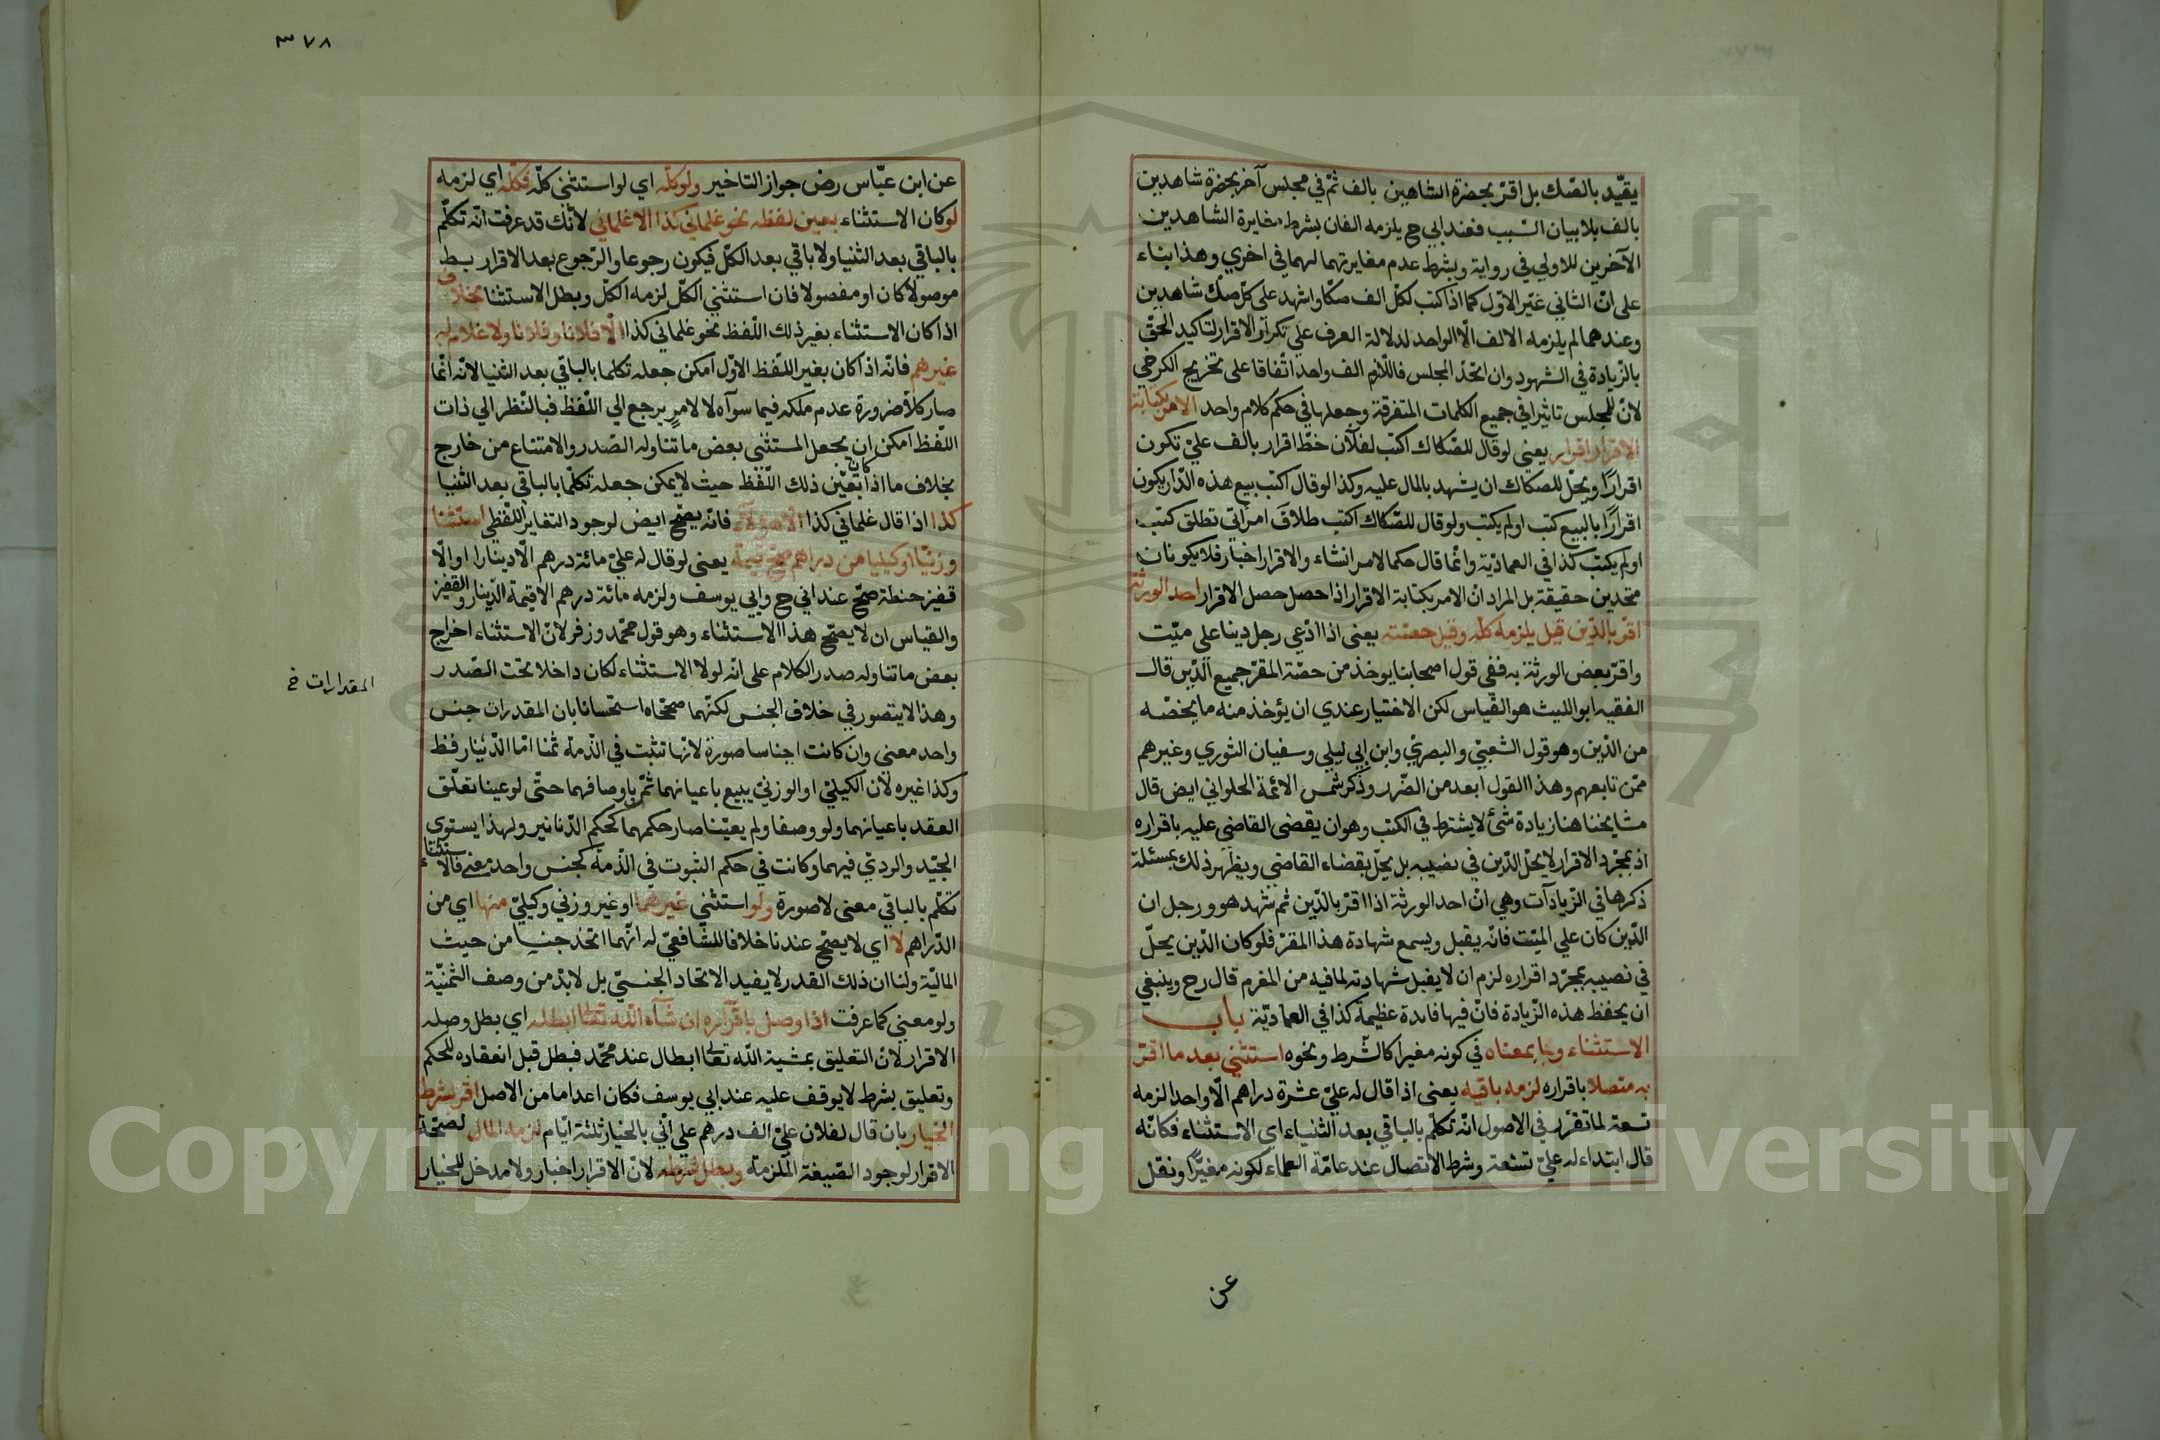 يقيّد بالصّك بل اقرّ بحضرة الشاهدين بالف ثمّ في مجلس آخر بحضرة شاهدين
بالف بلا بيان السّبب فعند ابي ح يلزمه الفان بشرط مغايرة الشاهدين
الآخرين للاولي في رواية وبشرط عدم مغايرتهما لهما في اخري وهذا بناء
على انّ الثاني غير الاوّل كما اذا كتب لكلّ الف صكّا واشهد على كلّ صكّ شاهدين
وعندهما لم يلزمه الالف الّا الواحد لدلالة العرف علي تكرار الاقرار لتاكيد الحقّ
بالزّيادة في الشهود وان اتحّد المجلس فاللّازم الف واحد اتّفاقا على تخريج الكرخي
لانّ للمجلس تاثيرا في جميع الكلمات المتفرقة وجعلها في حكم كلام واحد الامر بكتابة
الاقرار اقرار يعني لو قال للصّكاك اكتب لفلان خطّ اقرار بالف عليّ تكون
اقرارًا ويحلّ للصكاك ان يشهد بالمال عليه وكذا لو قال اكتب بيع هذه الدّار يكون
اقرارًا بالبيع كتب اولم يكتب ولو قال للصّكاك اكتب طلاق امرأتي تطلق كتب
اولم يكتب كذا في العماديّة وانّما قال حكما لامر انشاء والاقرار اخبار فلا يكونان
متحدين حقيقة بل المراد انّ الامر بكتابة الاقرار اذا حصل حصل الاقرار احد الورثة
اقرّ بالدّين قيل يلزمه كلّه وقيل حصّته يعني اذا ادّعي رجل دينا علي ميّت
واقرّ بعض الورثة به ففي قول اصحابنا يوخذ من حصّة المقرّ جميع الدّين قال
الفقيه ابو الليث هو القياس لكن الاختيار عندي ان يؤخذ منه ما يخصّه
من الدّين وهو قول الشعبيّ والبصريّ وابن ابي ليلي وسفيان الثوري وغيرهم
ممّن تابعهم وهذا القول ابعد من الضّرر وذكر شمس الائمّة الحلواني ايض قال
مشايخنا هنا زيادة شئ لا يشترط في الكتب وهو ان يقضى القاضي عليه باقراره
اذ بمجرّد الاقرار لا يحلّ الدّين في نصيبه بل يحلّ بقضاء القاضي ويظهر ذلك بمسئلة
ذكرها في الزّيادات وهي انّ احد الورثة اذا اقرّ بالدّين ثم شهد هو ورجل ان
الدّين كان علي الميّت فانّه يقبل ويسمع شهادة هذا المقرّ فلو كان الدّين يحلّ
في نصيبه بمجرّد اقراره لزم ان لا يقبل شهادته لما فيه من المغرم قال رح وينبغي
ان يحفظ هذه الزّيادة فانّ فيها فائدة عظيمة كذا في العماديّة باب
الاستثناء وما بمعناه في كونه مغيرا كالشّرط ونحوه استثني بعد ما اقرّ
به متصلا باقراره لزمه باقيه يعني اذا قال له عليّ عشرة دراهم الّا واحدا لزمه
تسعة لما تقرّر في الاصول انّه تكلّم بالباقي بعد الثنياء اي الاستثناء فكانّه
قال ابتداء له عليّ تسعة وشرط الاتصال عند عامّة العلماء لكونه مغيّرًا ونقل
عن
٣٧٨
عن ابن عبّاس رض جواز التاخير ولو كلّه اي لو استثنى كلّه فكلّه اي لزمه
لو كان الاستثناء بعين لفظه نحو غلماني كذا الا غلماني لأنّك قد عرفت انّه تكلّم
بالباقي بعد الثنيا ولا باقي بعد الكلّ فيكون رجوعا والرّجوع بعد الاقرار بط
موصولا كان او مفصولا فان استثنى الكلّ لزمه الكلّ وبطل الاستثنا بخلاف
اذا كان الاستثناء بغير ذلك اللّفظ نحو غلماني كذا الّا فلانا وفلانا ولا غلام له
غيرهم فانّه اذا كان بغير اللّفظ الاوّل امكن جعله تكلما بالباقي بعد الثنيا لانّه انّما
صار كلا ضرورة عدم ملكه فيما سواه لا لامرٍ يرجع الي اللّفظ فبالنّظر الي ذات
اللّفظ امكن ان يجعل المستثنى بعض ما تناوله الصّدر والامتناع من خارج
بخلاف ما اذا كان بعين ذلك اللّفظ حيث لا يمكن جعله تكلّما بالباقي بعد الثنيا
كذا اذا قال غلماني كذا الا هولاء فانّه يصّح ايض لوجود التغاير اللّفظي استثنا
وزنيّا او كيليا من دراهم صحّ قيمة يعني لو قال له عليّ مائة درهم الّا دينارا او الّا
قفيز حنطة صحّ عند ابي ح وابي يوسف ولزمه مائة درهم الا قيمة الدّينار والقفيز
والقياس ان لا يصحّ هذا الاستثناء وهو قول محمّد وزفر لانّ الاستثناء اخراج
بعض ما تناوله صدر الكلام على انّه لولا الاستثناء لكان داخلا تحت الصّدر
وهذا لا يتصور في خلاف الجنس لكنّهما صحّحاه استحسانا بان المقدرات جنس
المقدارات خ
واحد معنى وان كانت اجناسا صورة لانّها تثبت في الذّمة ثمنا امّا الدّينار فظ
وكذا غيره لأن الكيليّ او الوزنيّ يبيع باعيانهما ثمّ باوصافهما حتّى لو عينا تعلّق
العقد باعيانهما ولو وصفا ولم يعيّنا صار حكمهما كحكم الدّنانير ولهذا يستوي
الجيّد والرديّ فيهما وكانت في حكم الثبوت في الذّمة كجنس واحد معنى فالاستثناء
تكلّم بالباقي معنى لا صورة ولو استثني غيرهما او غير وزني وكيليّ منها اي من
الدّراهم لا اي لا يصّح عندنا خلافا للشّافعيّ له انّهما اتحّد جنسا من حيث
الماليّة ولنا ان ذلك القدر لا يفيد الاتحاد الجنسيّ بل لا بدّ من وصف الثمنيّة
ولو معني كما عرفت اذا وصل باقراره ان شآء اللّه تعالى ابطله اي بطل وصله
الاقرار لانّ التعليق بمشيّة اللّه تعالى ابطال عند محمّد فبطل قبل انعقاده للحكم
وتعليق بشرط لا يوقف عليه عند ابي يوسف فكان اعداما من الاصل اقرّ بشرط
الخيار بان قال لفلان عليّ الف درهم علي انّي بالخيار ثلثة ايّام لزمه المال لصحّة
الاقرار لوجود الصّيغة الملزمة وبطل شرطه لانّ الاقرار اخبار ولا مدخل للخيار
Copyright © King Saud University